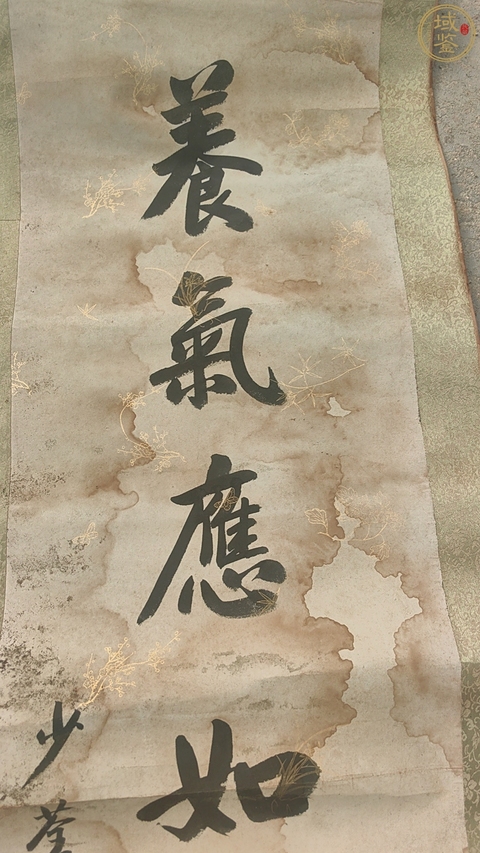 養氣應如
少荃
域鉴